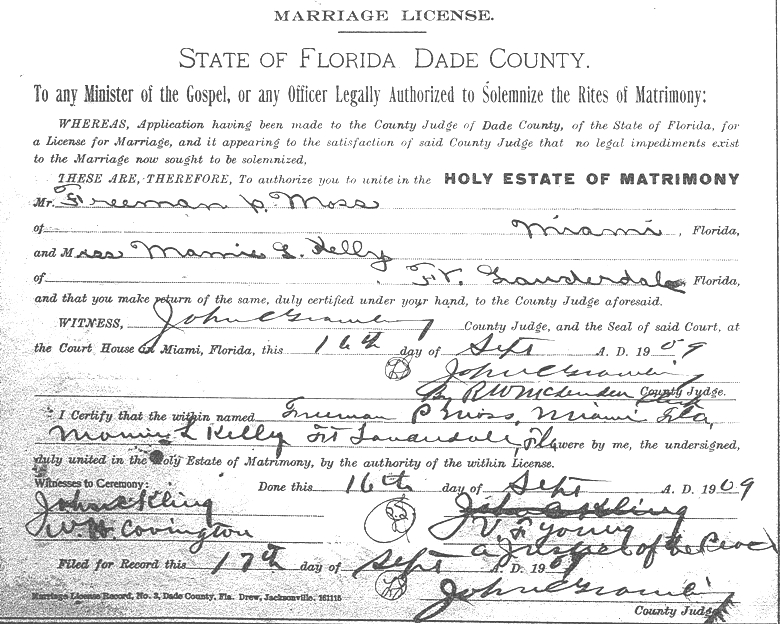 MARRIAGE LICENSE.
STATE OF FLORIDA DADE COUNTY.
To any Minister of the Gospel, or any Officer Legally Authorized to Solemnize the Rites of Matrimony:
WHEREAS, Application having been made to the County Judge of Dade County, of the State of Florida, for
a License for Marriage, and it appearing to the satisfaction of said County Judge that no legal impediments exist
to the Marriage now sought to be solemnized,
THESE ARE, THEREFORE, To authorize you to unite in the HOLY ESTATE OF MATRIMONY
Mr. Freeman P. Moss
of Miami, Florida,
and Miss Mamie L. Kelly
of Ft. Lauderdale Florida,
and that you make return of the same, duly certified under your hand, to the County Judge aforesaid.
WITNESS, John C Gramling County Judge, and the Seal of said Court, at
the Court House in Miami, Florida, this 16th day of Sept A. D. 1909
John C Gramling
By R W McLendon County Judge.
I Certify that the within named Freeman P Moss, Miami Fla,
Mamie L Kelly Ft Lauderdale, Fla were by me, the undersigned,
duly united in the Holy Estate of Matrimony, by the authority of the within License.
Witnesses to Ceremony: Done this 16th day of Sept A. D. 1909
John C Kling John C Kling
W. H. Covington V F Young
a Justice of the Peace
Filed for Record this 17th day of Sept A. D. 1909
John C Gramling
County Judge
Marriage License Record, No. 3, Dade County, Fla. Drew, Jacksonville, 161115